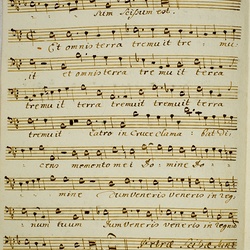 sum scissum est.
Et omnis terra tremuit tre mu
it et omnis terra tre mu it
tremuit terra tremuit terra
tremuit Latro in Cruce clama bat di
cens memento mei Do mine Do
mine Dum veneris veneris in reg
num tuum Dum veneris veneris in regno